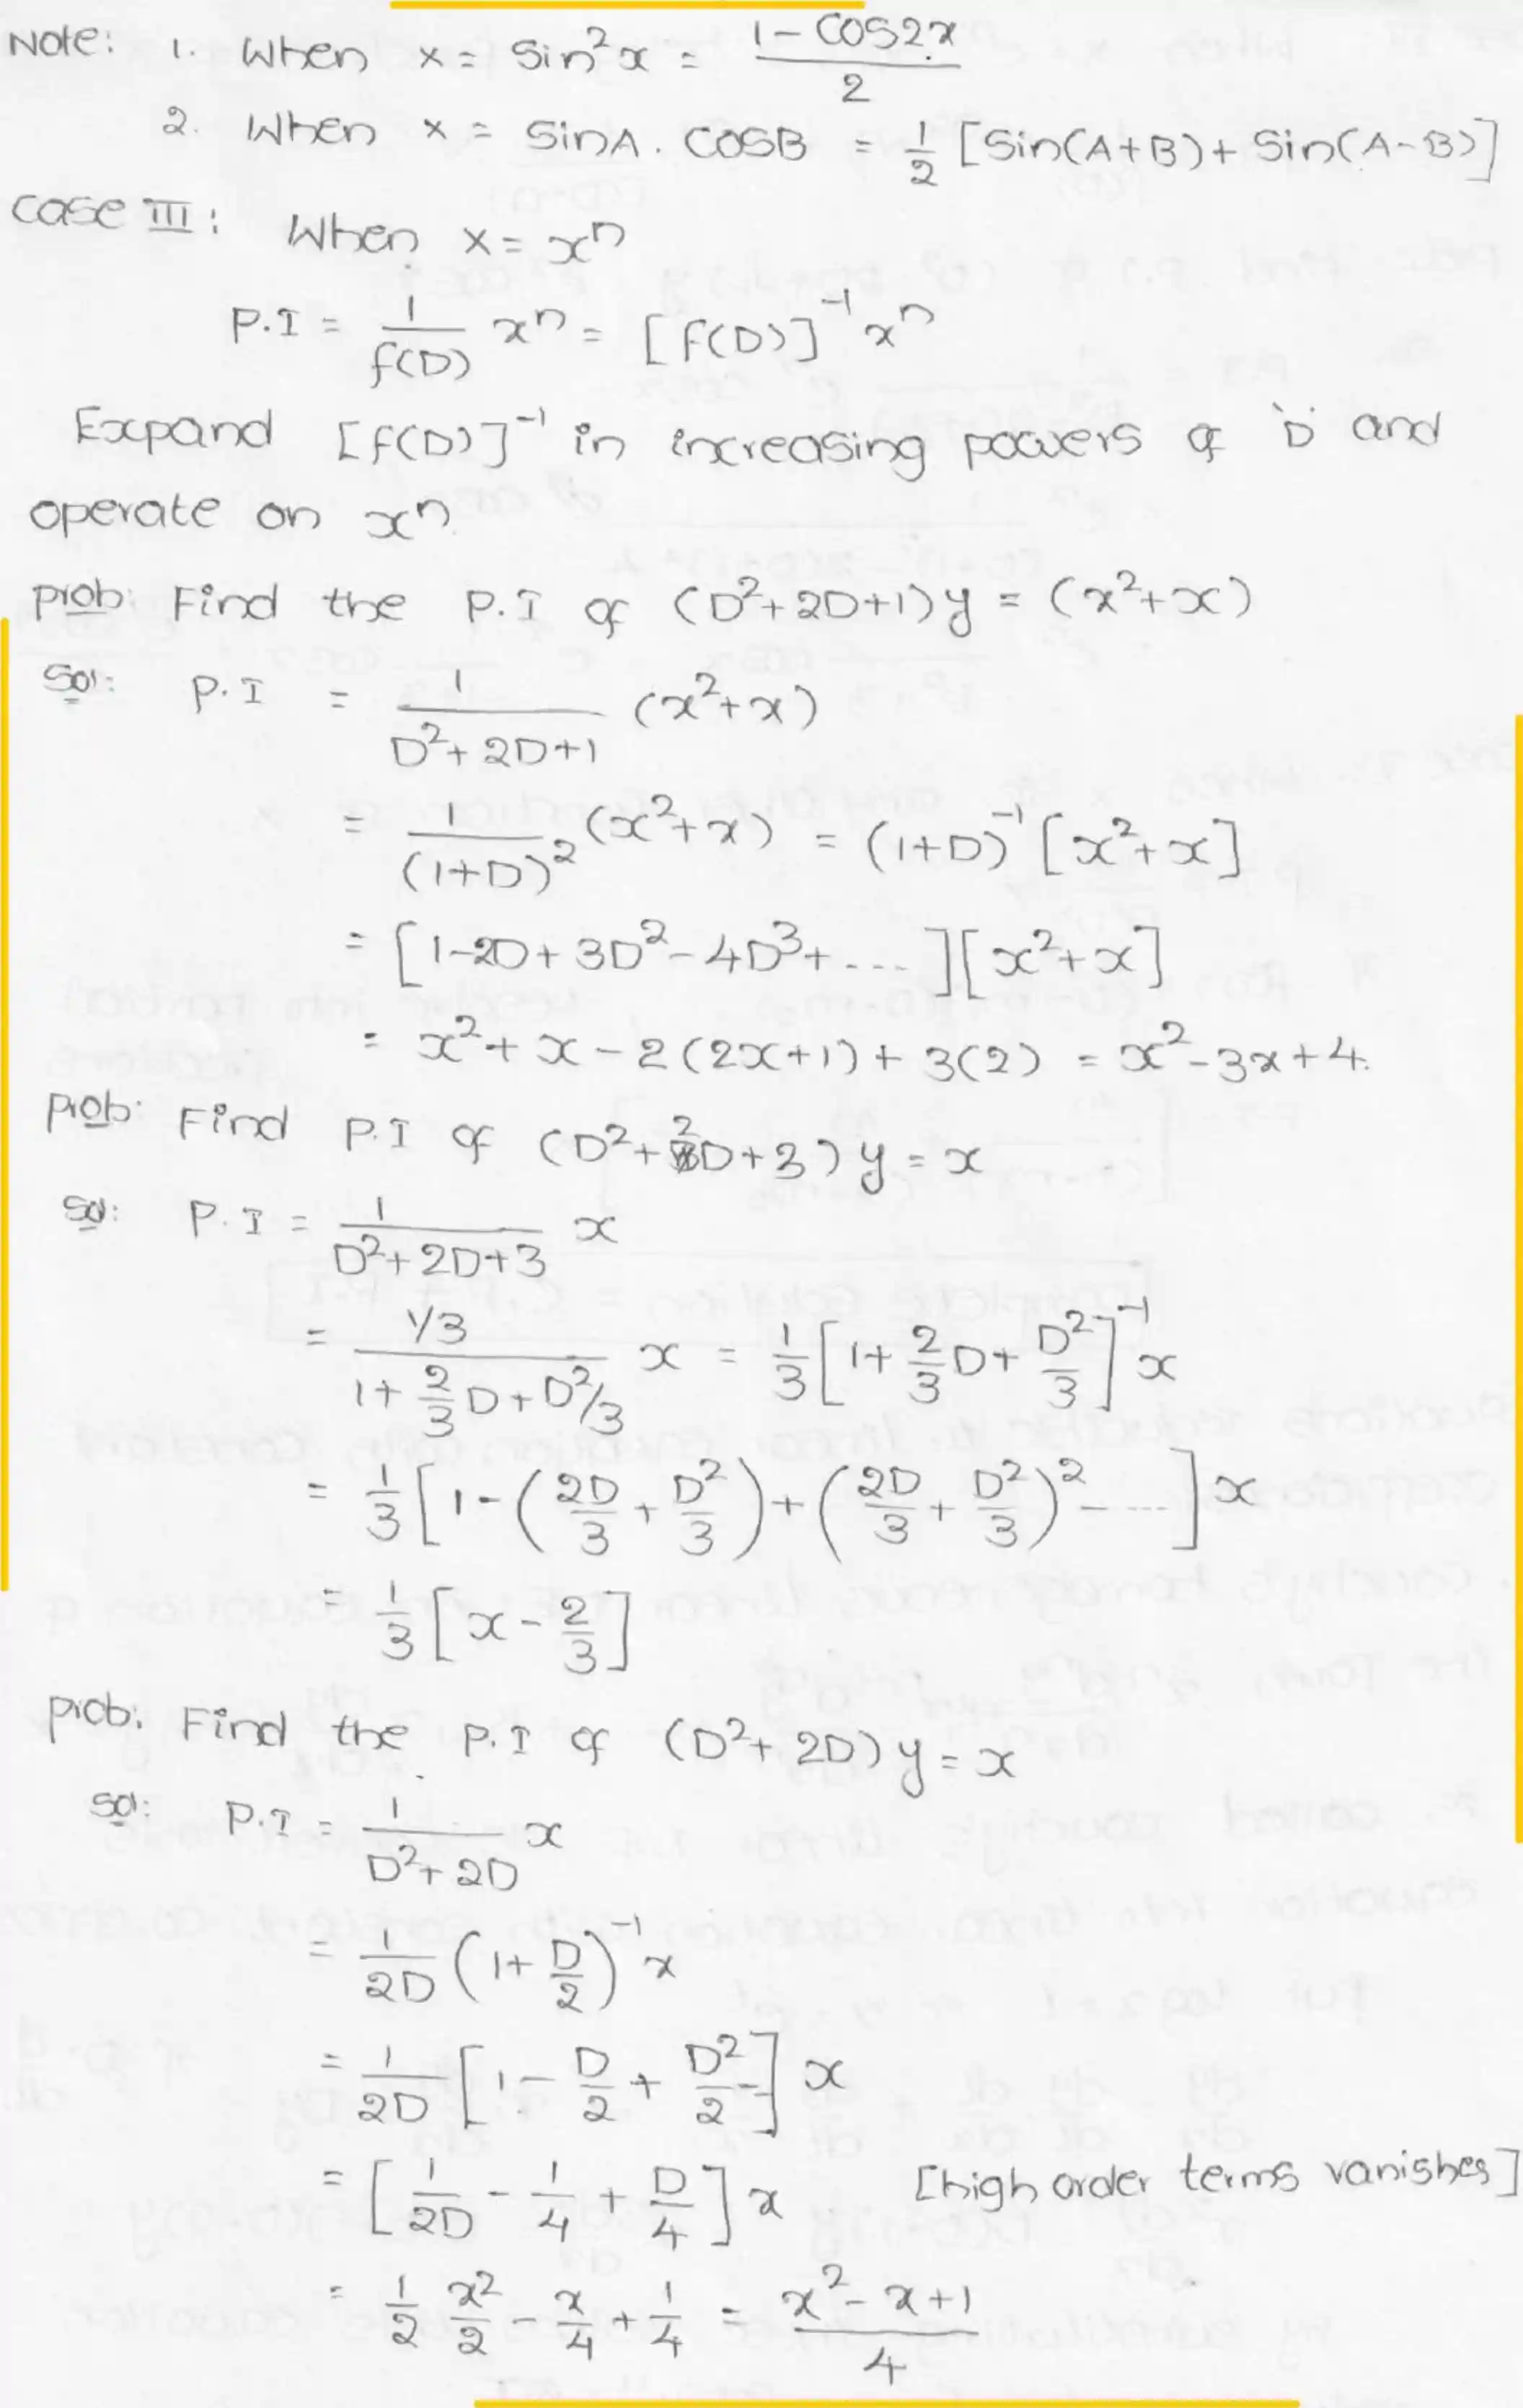 Note: 1. When x = Sin²x = (1 - cos2x)/2
2. When x = SinA . COSB = 1/2 [Sin(A+B) + Sin(A-B)]
Case III: When x = xⁿ
P.I = 1/f(D) xⁿ = [f(D)]⁻¹ xⁿ
Expand [f(D)]⁻¹ in increasing powers of 'D' and
operate on xⁿ
prob: Find the P.I of (D²+2D+1)y = (x²+x)
Sol: P.I = 1/(D²+2D+1) (x²+x)
= 1/(1+D)² (x²+x) = (1+D)⁻¹ [x²+x]
= [1-2D+3D²-4D³+...][x²+x]
= x²+x-2(2x+1)+3(2) = x²-3x+4.
prob: Find P.I of (D²+2D+3)y = x
Sol: P.I = 1/(D²+2D+3) x
= (1/3)/(1+2/3 D+D²/3) x = 1/3 [1+2/3 D+D²/3]⁻¹ x
= 1/3 [1-(2D/3+D²/3)+(2D/3+D²/3)²-....] x
= 1/3 [x-2/3]
prob: Find the P.I of (D²+2D)y = x
Sol: P.I = 1/(D²+2D) x
= 1/2D (1+D/2)⁻¹ x
= 1/2D [1-D/2+D²/2-] x
= [1/2D-1/4+D/4] x [high order terms vanishes]
= 1/2 x²/2-x/4+1/4 = (x²-x+1)/4